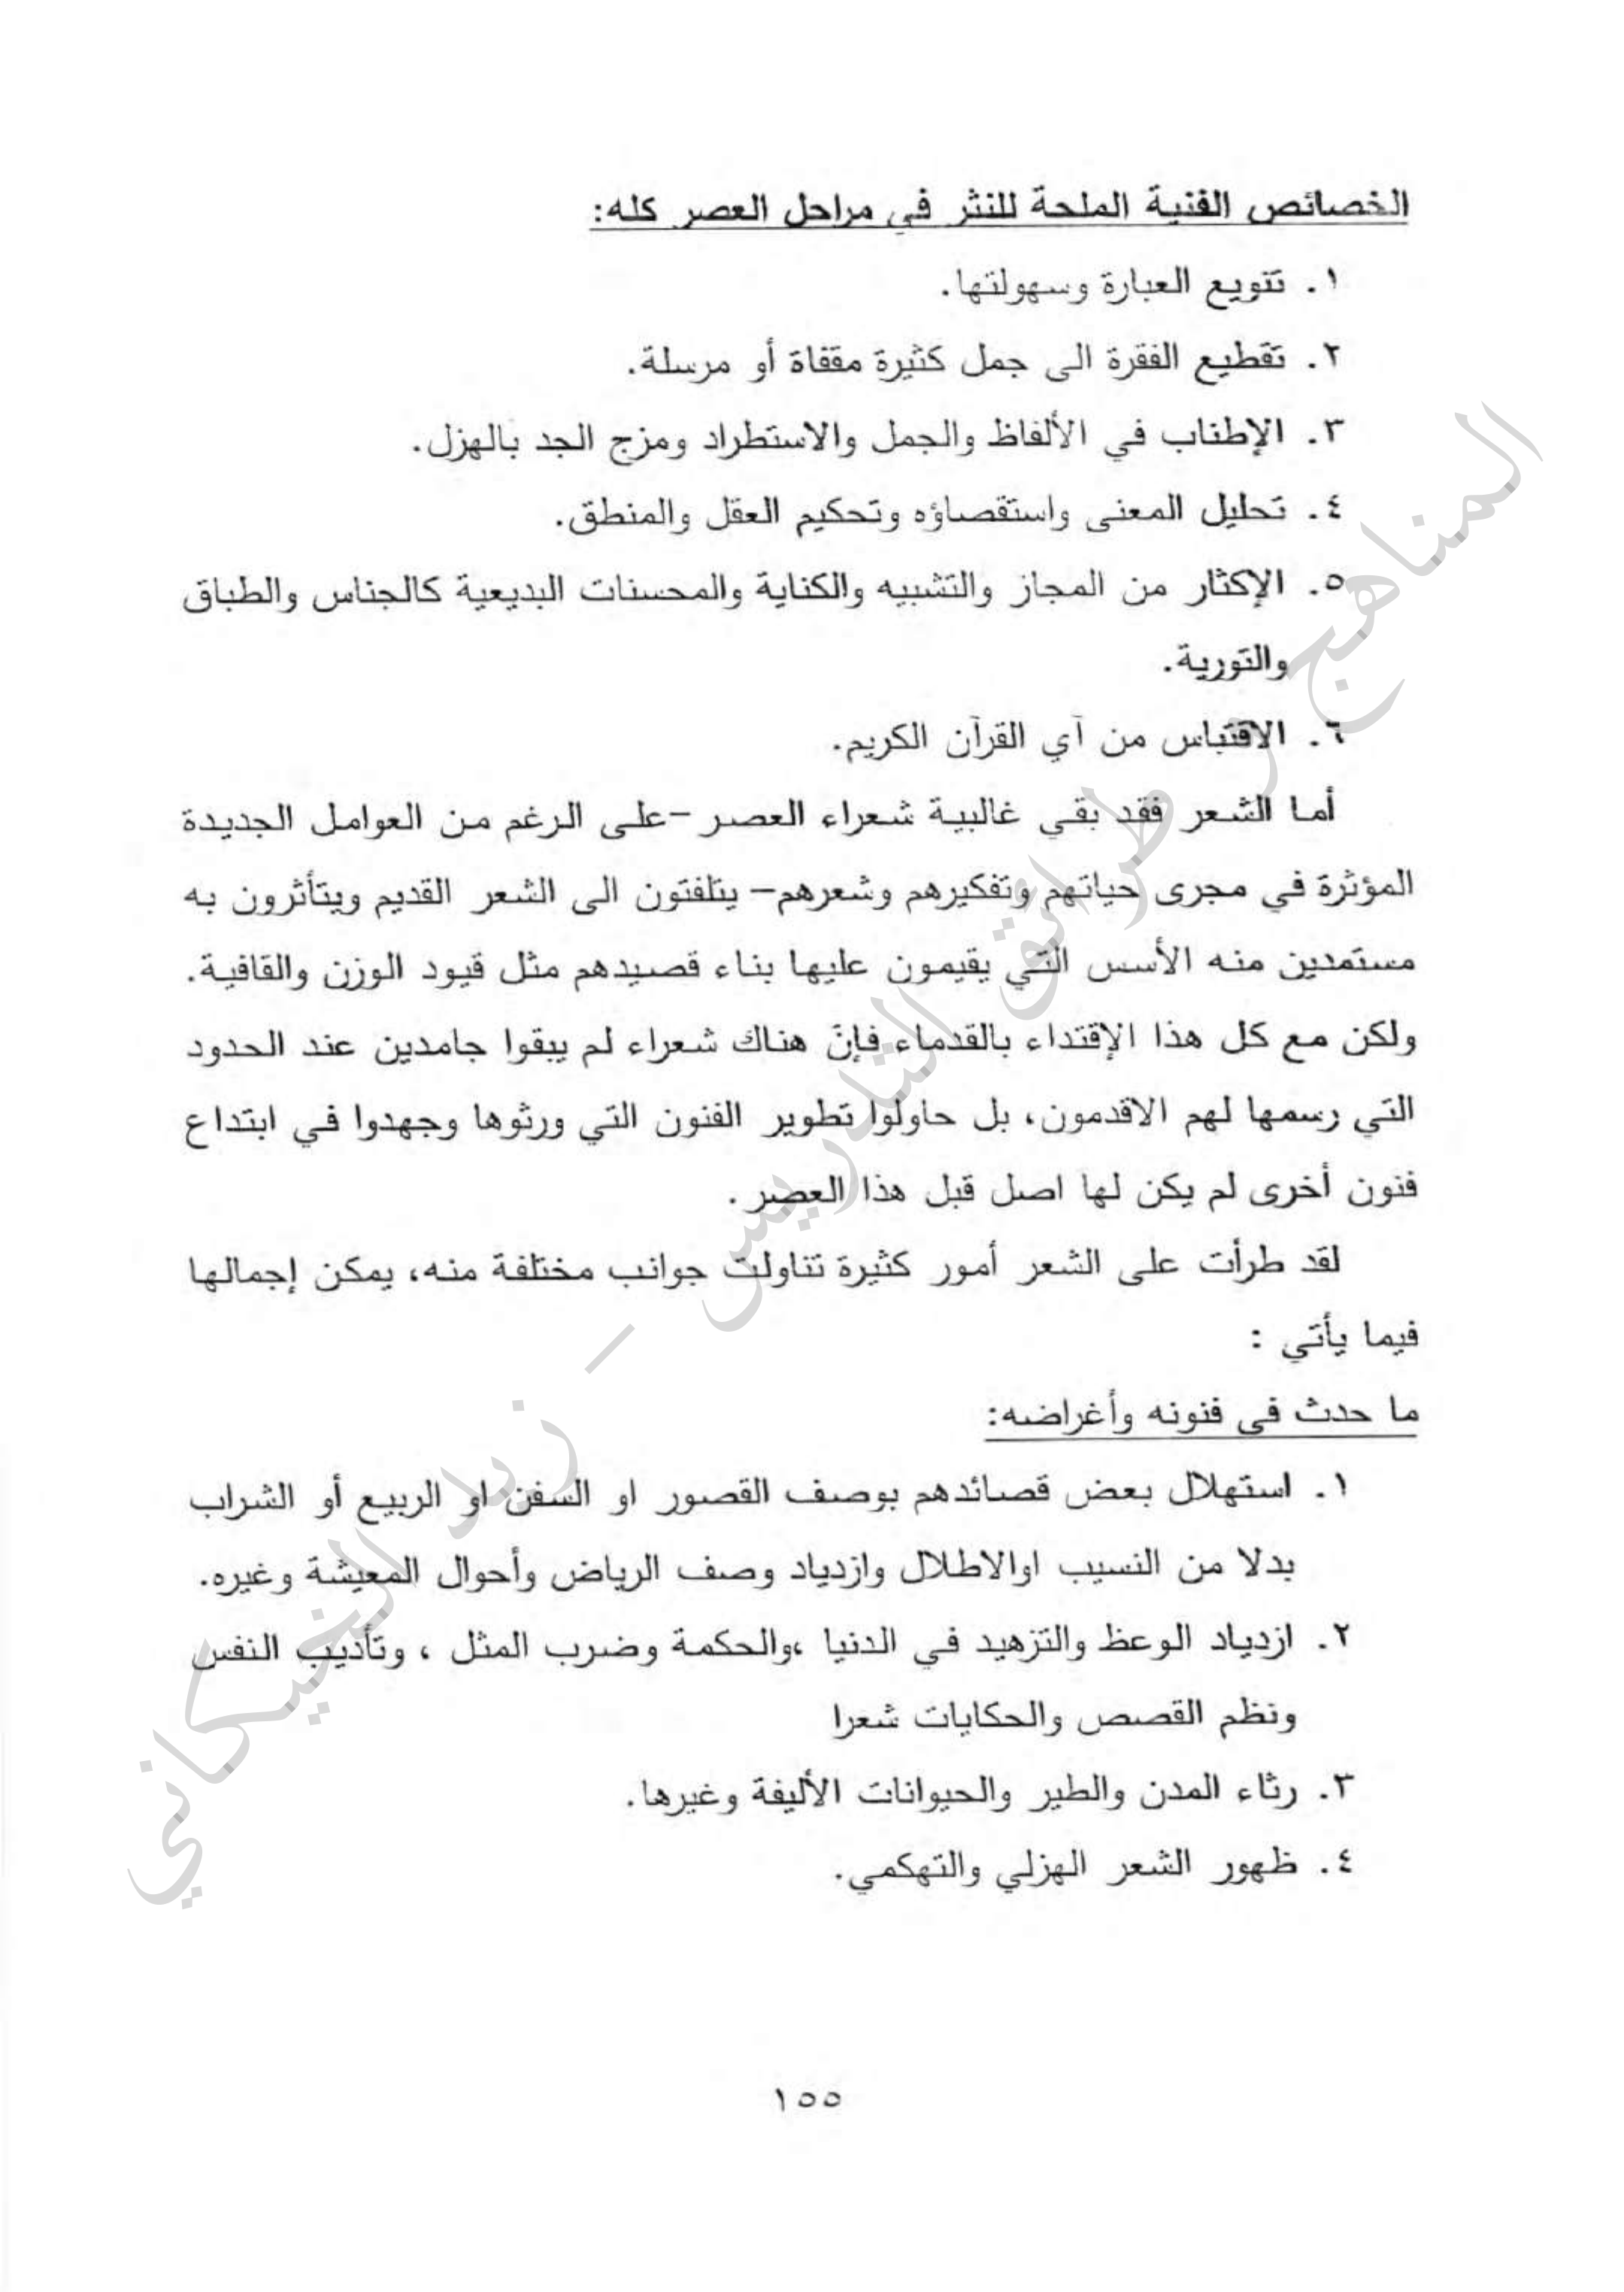 الخصائص الفنية الملحة للنثر في مراحل العصر كله:
١. تتويع العبارة وسهولتها.
٢. تقطيع الفقرة الى جمل كثيرة مقفاة أو مرسلة.
٣. الإطناب في الألفاظ والجمل والاستطراد ومزج الجد بالهزل.
٤. تحليل المعنى واستقصاؤه وتحكيم العقل والمنطق.
٥. الإكثار من المجاز والتشبيه والكناية والمحسنات البديعية كالجناس والطباق
والتورية.
٦. الاقتباس من آي القرآن الكريم.
أما الشعر فقد بقي غالبية شعراء العصر -على الرغم من العوامل الجديدة
المؤثرة في مجرى حياتهم وتفكيرهم وشعرهم- يتلفتون الى الشعر القديم ويتأثرون به
مستمدين منه الأسس التي يقيمون عليها بناء قصيدهم مثل قيود الوزن والقافية.
ولكن مع كل هذا الإقتداء بالقدماء فإنَ هناك شعراء لم يبقوا جامدين عند الحدود
التي رسمها لهم الاقدمون، بل حاولوا تطوير الفنون التي ورثوها وجهدوا في ابتداع
فنون أخرى لم يكن لها اصل قبل هذا العصر.
لقد طرأت على الشعر أمور كثيرة تناولت جوانب مختلفة منه، يمكن إجمالها
فيما يأتي :
ما حدث في فنونه وأغراضه:
١. استهلال بعض قصائدهم بوصف القصور او السفن او الربيع أو الشراب
بدلا من النسيب اوالاطلال وازدياد وصف الرياض وأحوال المعيشة وغيره.
٢. ازدياد الوعظ والتزهيد في الدنيا ،والحكمة وضرب المثل ، وتأديب النفس
ونظم القصص والحكايات شعرا
٣. رثاء المدن والطير والحيوانات الأليفة وغيرها.
٤. ظهور الشعر الهزلي والتهكمي.
١٥٥
المناهج و طرائق التدريس - زياد الخيكاني